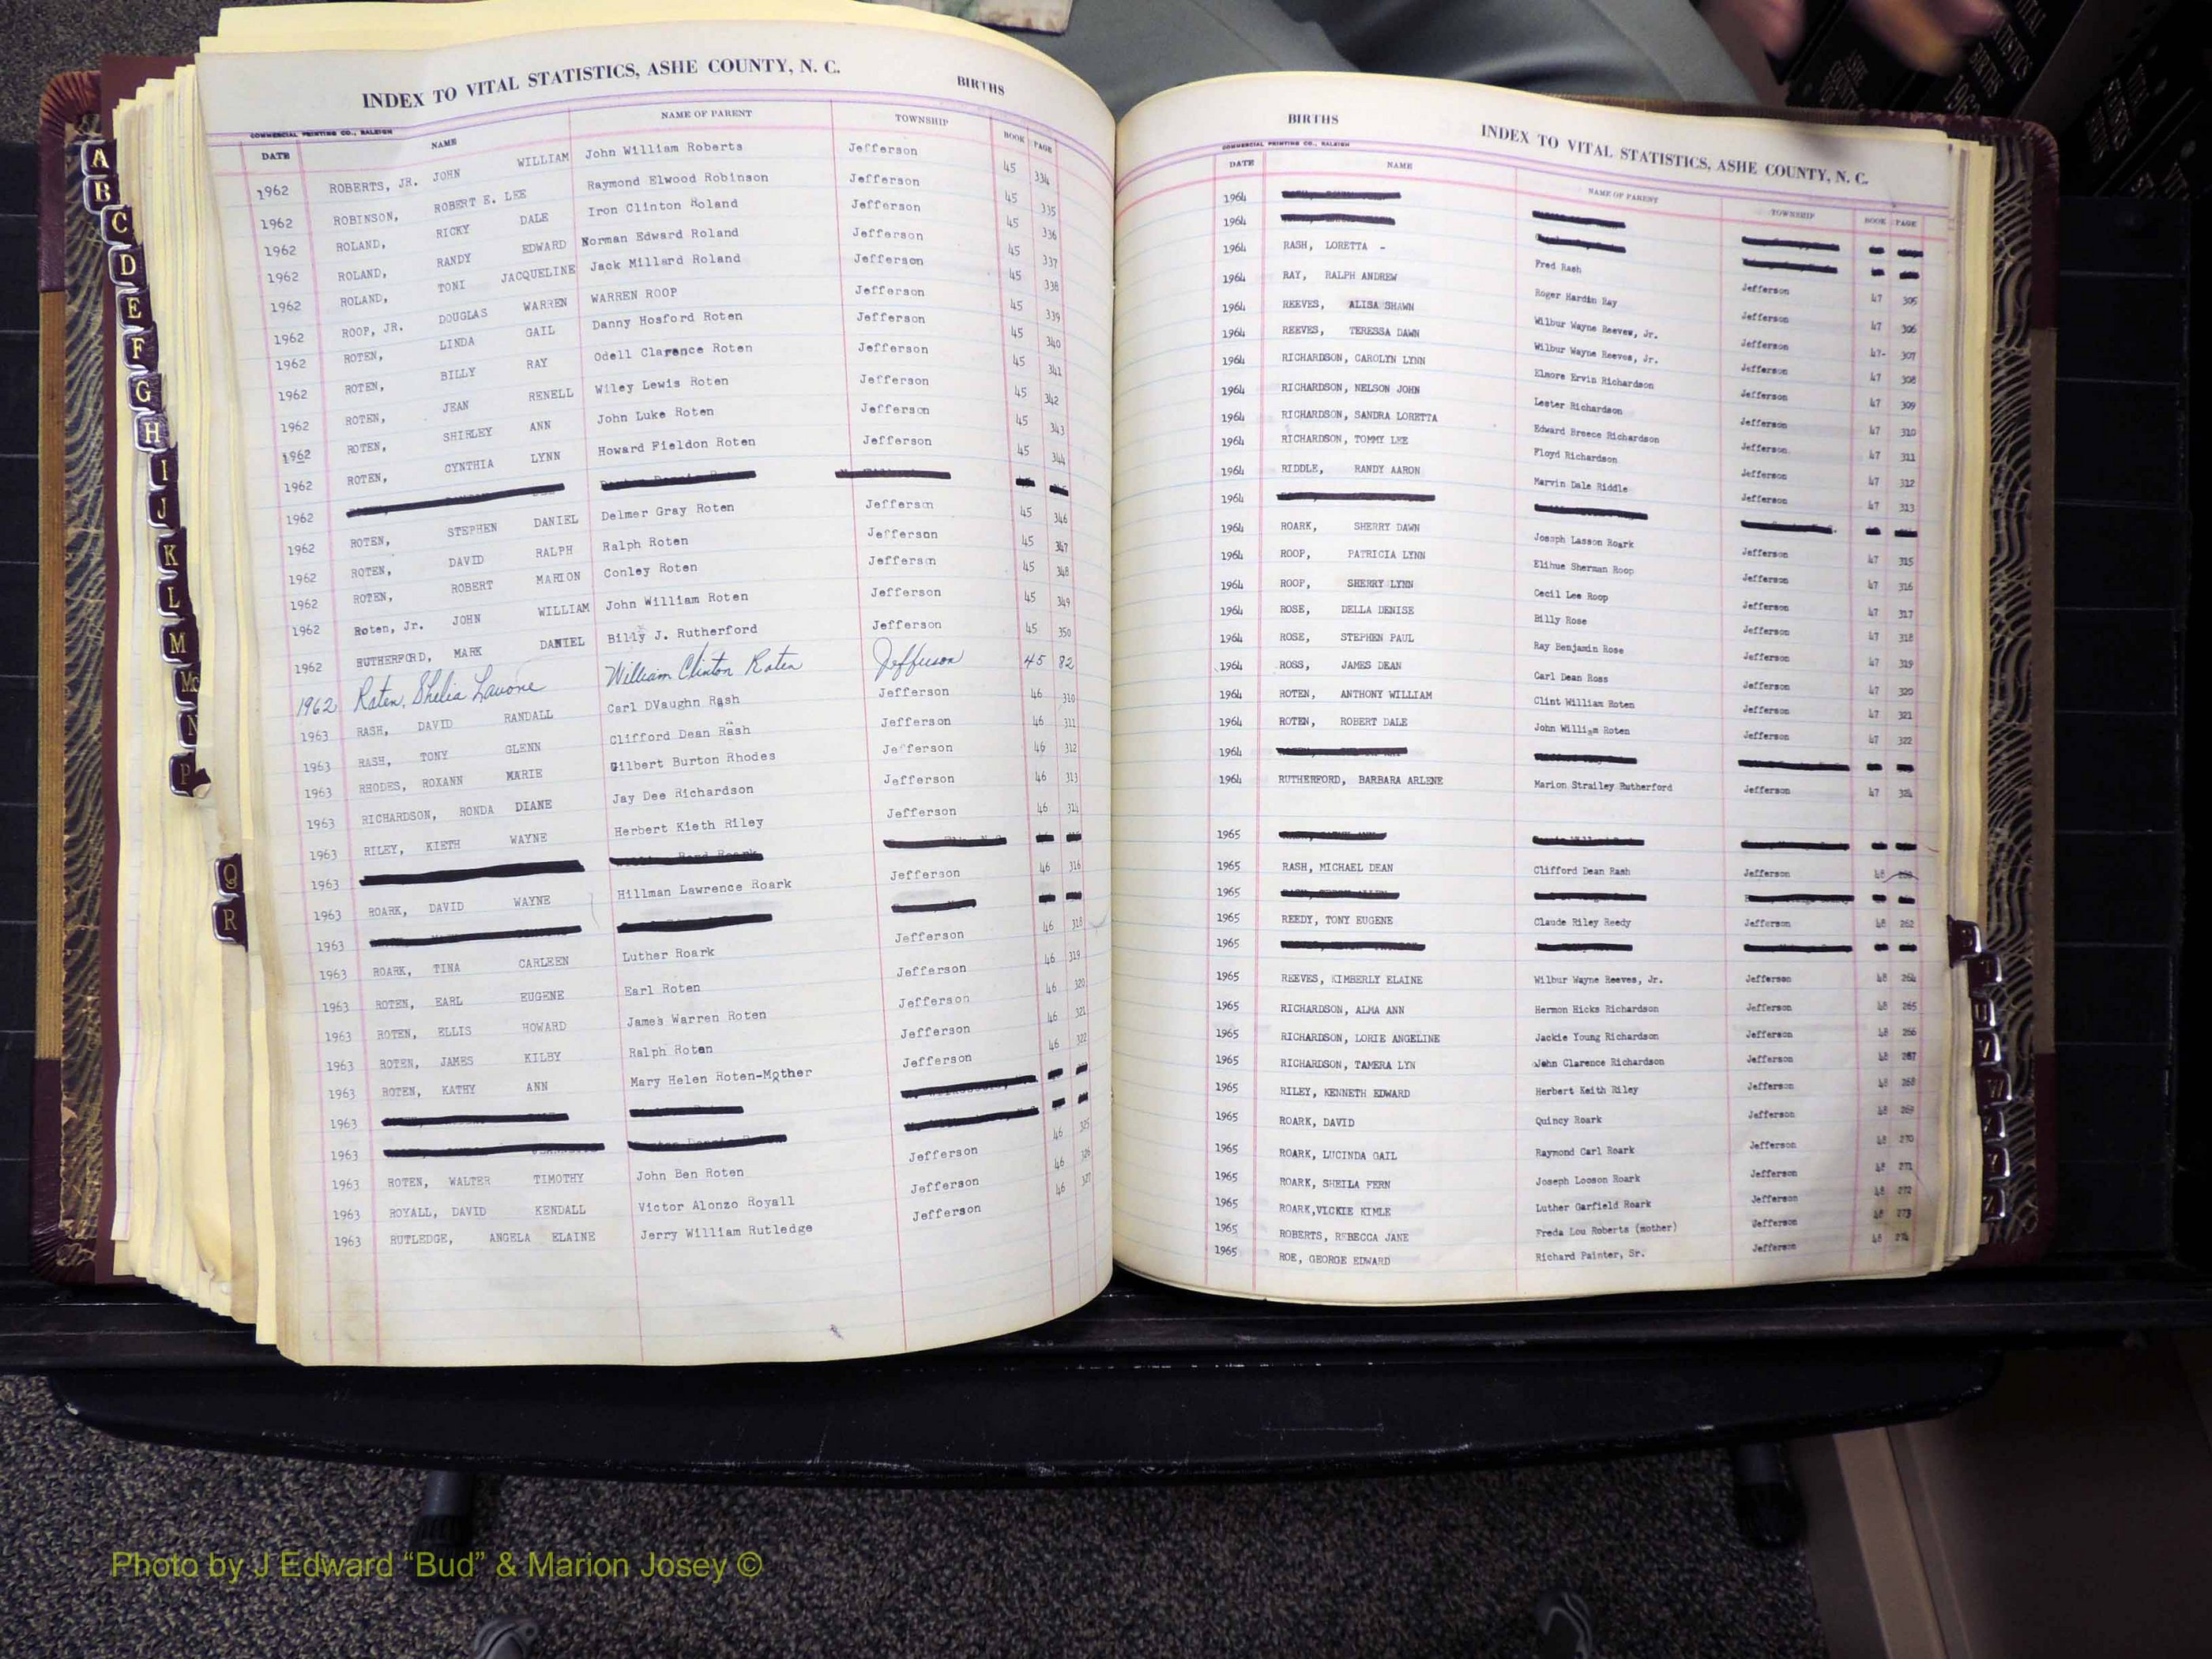 INDEX TO VITAL STATISTICS, ASHE COUNTY, N. C. BIRTHS
COMMERCIAL PRINTING CO., RALEIGH
DATE NAME NAME OF PARENT TOWNSHIP BOOK PAGE
1962 ROBERTS, JR. JOHN WILLIAM John William Roberts Jefferson 45 334
1962 ROBINSON, ROBERT E. LEE Raymond Elwood Robinson Jefferson 45 335
1962 ROLAND, RICKY DALE Iron Clinton Roland Jefferson 45 336
1962 ROLAND, RANDY EDWARD Norman Edward Roland Jefferson 45 337
1962 ROLAND, TONI JACQUELINE Jack Millard Roland Jefferson 45 338
1962 ROOP, JR. DOUGLAS WARREN WARREN ROOP Jefferson 45 339
1962 ROTEN, LINDA GAIL Danny Hosford Roten Jefferson 45 340
1962 ROTEN, BILLY RAY Odell Clarence Roten Jefferson 45 341
1962 ROTEN, JEAN RENELL Wiley Lewis Roten Jefferson 45 342
1962 ROTEN, SHIRLEY ANN John Luke Roten Jefferson 45 343
1962 ROTEN, CYNTHIA LYNN Howard Fieldon Roten Jefferson 45 344
1962
1962 ROTEN, STEPHEN DANIEL Delmer Gray Roten Jefferson 45 346
1962 ROTEN, DAVID RALPH Ralph Roten Jefferson 45 347
1962 ROTEN, ROBERT MARION Conley Roten Jefferson 45 348
1962 Roten, Jr. JOHN WILLIAM John William Roten Jefferson 45 349
1962 RUTHERFORD, MARK DANIEL Billy J. Rutherford Jefferson 45 350
1962 Roten, Shelia Lavone William Clinton Roten Jefferson 45 82
1963 RASH, DAVID RANDALL Carl DVaughn Rash Jefferson 46 310
1963 RASH, TONY GLENN Clifford Dean Rash Jefferson 46 311
1963 RHODES, ROXANN MARIE Gilbert Burton Rhodes Jefferson 46 312
1963 RICHARDSON, RONDA DIANE Jay Dee Richardson Jefferson 46 313
1963 RILEY, KIETH WAYNE Herbert Kieth Riley Jefferson 46 314
1963
1963 ROARK, DAVID WAYNE Hillman Lawrence Roark Jefferson 46 316
1963
1963 ROARK, TINA CARLEEN Luther Roark Jefferson 46 318
1963 ROTEN, EARL EUGENE Earl Roten Jefferson 46 319
1963 ROTEN, ELLIS HOWARD James Warren Roten Jefferson 46 320
1963 ROTEN, JAMES KILBY Ralph Roten Jefferson 46 321
1963 ROTEN, KATHY ANN Mary Helen Roten-Mother Jefferson 46 322
1963
1963
1963 ROTEN, WALTER TIMOTHY John Ben Roten Jefferson 46 325
1963 ROYALL, DAVID KENDALL Victor Alonzo Royall Jefferson 46 326
1963 RUTLEDGE, ANGELA ELAINE Jerry William Rutledge Jefferson 46 327
BIRTHS INDEX TO VITAL STATISTICS, ASHE COUNTY, N. C.
COMMERCIAL PRINTING CO., RALEIGH
DATE NAME NAME OF PARENT TOWNSHIP BOOK PAGE
1964
1964
1964 RASH, LORETTA - Fred Rash Jefferson 47 305
1964 RAY, RALPH ANDREW Roger Hardin Ray Jefferson 47 306
1964 REEVES, ALISA SHAWN Wilbur Wayne Reeves, Jr. Jefferson 47- 307
1964 REEVES, TERESSA DAWN Wilbur Wayne Reeves, Jr. Jefferson 47 308
1964 RICHARDSON, CAROLYN LYNN Elmore Ervin Richardson Jefferson 47 309
1964 RICHARDSON, NELSON JOHN Lester Richardson Jefferson 47 310
1964 RICHARDSON, SANDRA LORETTA Edward Breece Richardson Jefferson 47 311
1964 RICHARDSON, TOMMY LEE Floyd Richardson Jefferson 47 312
1964 RIDDLE, RANDY AARON Marvin Dale Riddle Jefferson 47 313
1964
1964 ROARK, SHERRY DAWN Joseph Lasson Roark Jefferson 47 315
1964 ROOP, PATRICIA LYNN Elihue Sherman Roop Jefferson 47 316
1964 ROOP, SHERRY LYNN Cecil Lee Roop Jefferson 47 317
1964 ROSE, DELLA DENISE Billy Rose Jefferson 47 318
1964 ROSE, STEPHEN PAUL Ray Benjamin Rose Jefferson 47 319
1964 ROSS, JAMES DEAN Carl Dean Ross Jefferson 47 320
1964 ROTEN, ANTHONY WILLIAM Clint William Roten Jefferson 47 321
1964 ROTEN, ROBERT DALE John William Roten Jefferson 47 322
1964
1964 RUTHERFORD, BARBARA ARLENE Marion Strailey Rutherford Jefferson 47 324
1965
1965 RASH, MICHAEL DEAN Clifford Dean Rash Jefferson 48
1965
1965 REEDY, TONY EUGENE Claude Riley Reedy Jefferson 48 262
1965
1965 REEVES, KIMBERLY ELAINE Wilbur Wayne Reeves, Jr. Jefferson 48 264
1965 RICHARDSON, ALMA ANN Hermon Hicks Richardson Jefferson 48 265
1965 RICHARDSON, LORIE ANGELINE Jackie Young Richardson Jefferson 48 266
1965 RICHARDSON, TAMERA LYN John Clarence Richardson Jefferson 48 267
1965 RILEY, KENNETH EDWARD Herbert Keith Riley Jefferson 48 268
1965 ROARK, DAVID Quincy Roark Jefferson 48 269
1965 ROARK, LUCINDA GAIL Raymond Carl Roark Jefferson 48 270
1965 ROARK, SHEILA FERN Joseph Looson Roark Jefferson 48 271
1965 ROARK,VICKIE KIMLE Luther Garfield Roark Jefferson 48 272
1965 ROBERTS, REBECCA JANE Freda Lou Roberts (mother) Jefferson 48 273
1965 ROE, GEORGE EDWARD Richard Painter, Sr. Jefferson 48 274
A
B
C
D
E
F
G
H
I
J
K
L
M
Mc
N
P
Q
R
Photo by J Edward “Bud” & Marion Josey ©